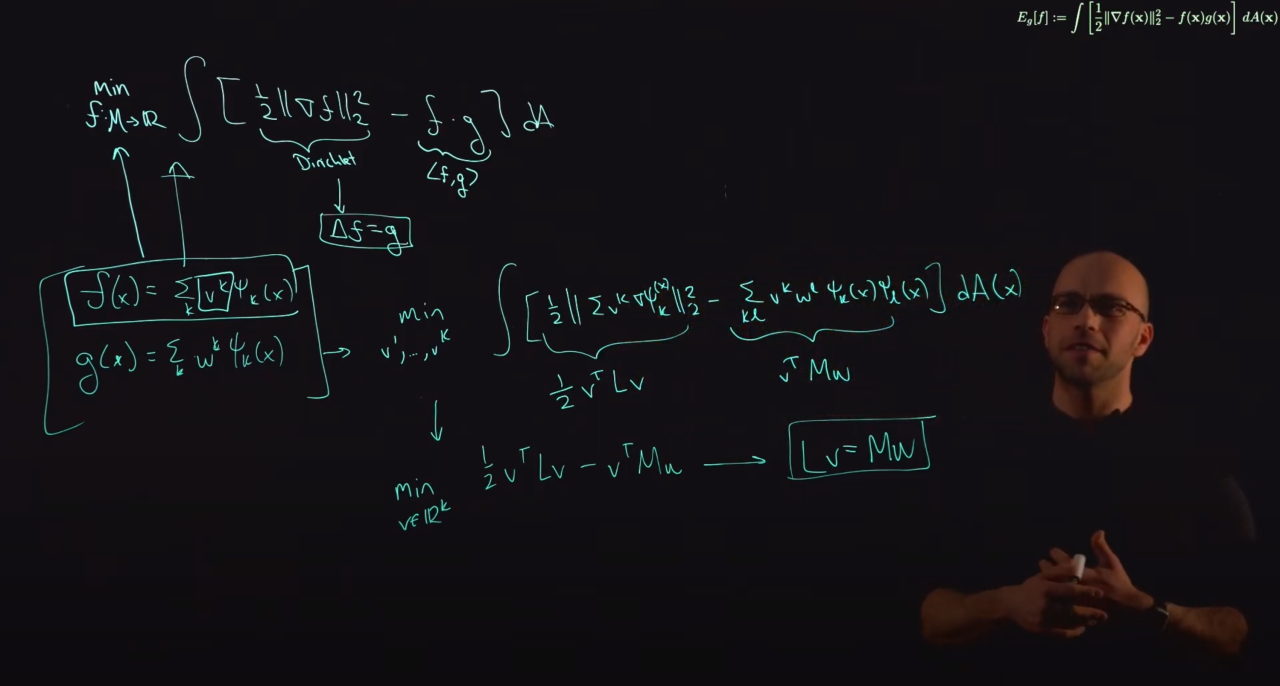 E_g[f] := ∫ [½‖∇f(x)‖₂² − f(x)g(x)] dA(x)
min f:M→ℝ ∫ [ ½‖∇f‖₂² − f·g ] dA
Dirichlet
⟨f,g⟩
Δf = g
f(x) = Σ_k v^k ψ_k(x)
g(x) = Σ_k w^k ψ_k(x)
→ min v¹,…,v^k ∫ [ ½‖Σ v^k ∇ψ_k(x)‖₂² − Σ_kl v^k w^l ψ_k(x) ψ_l(x) ] dA(x)
½ vᵀLv
vᵀMw
min v∈ℝ^k ½ vᵀLv − vᵀMw → Lv = Mw